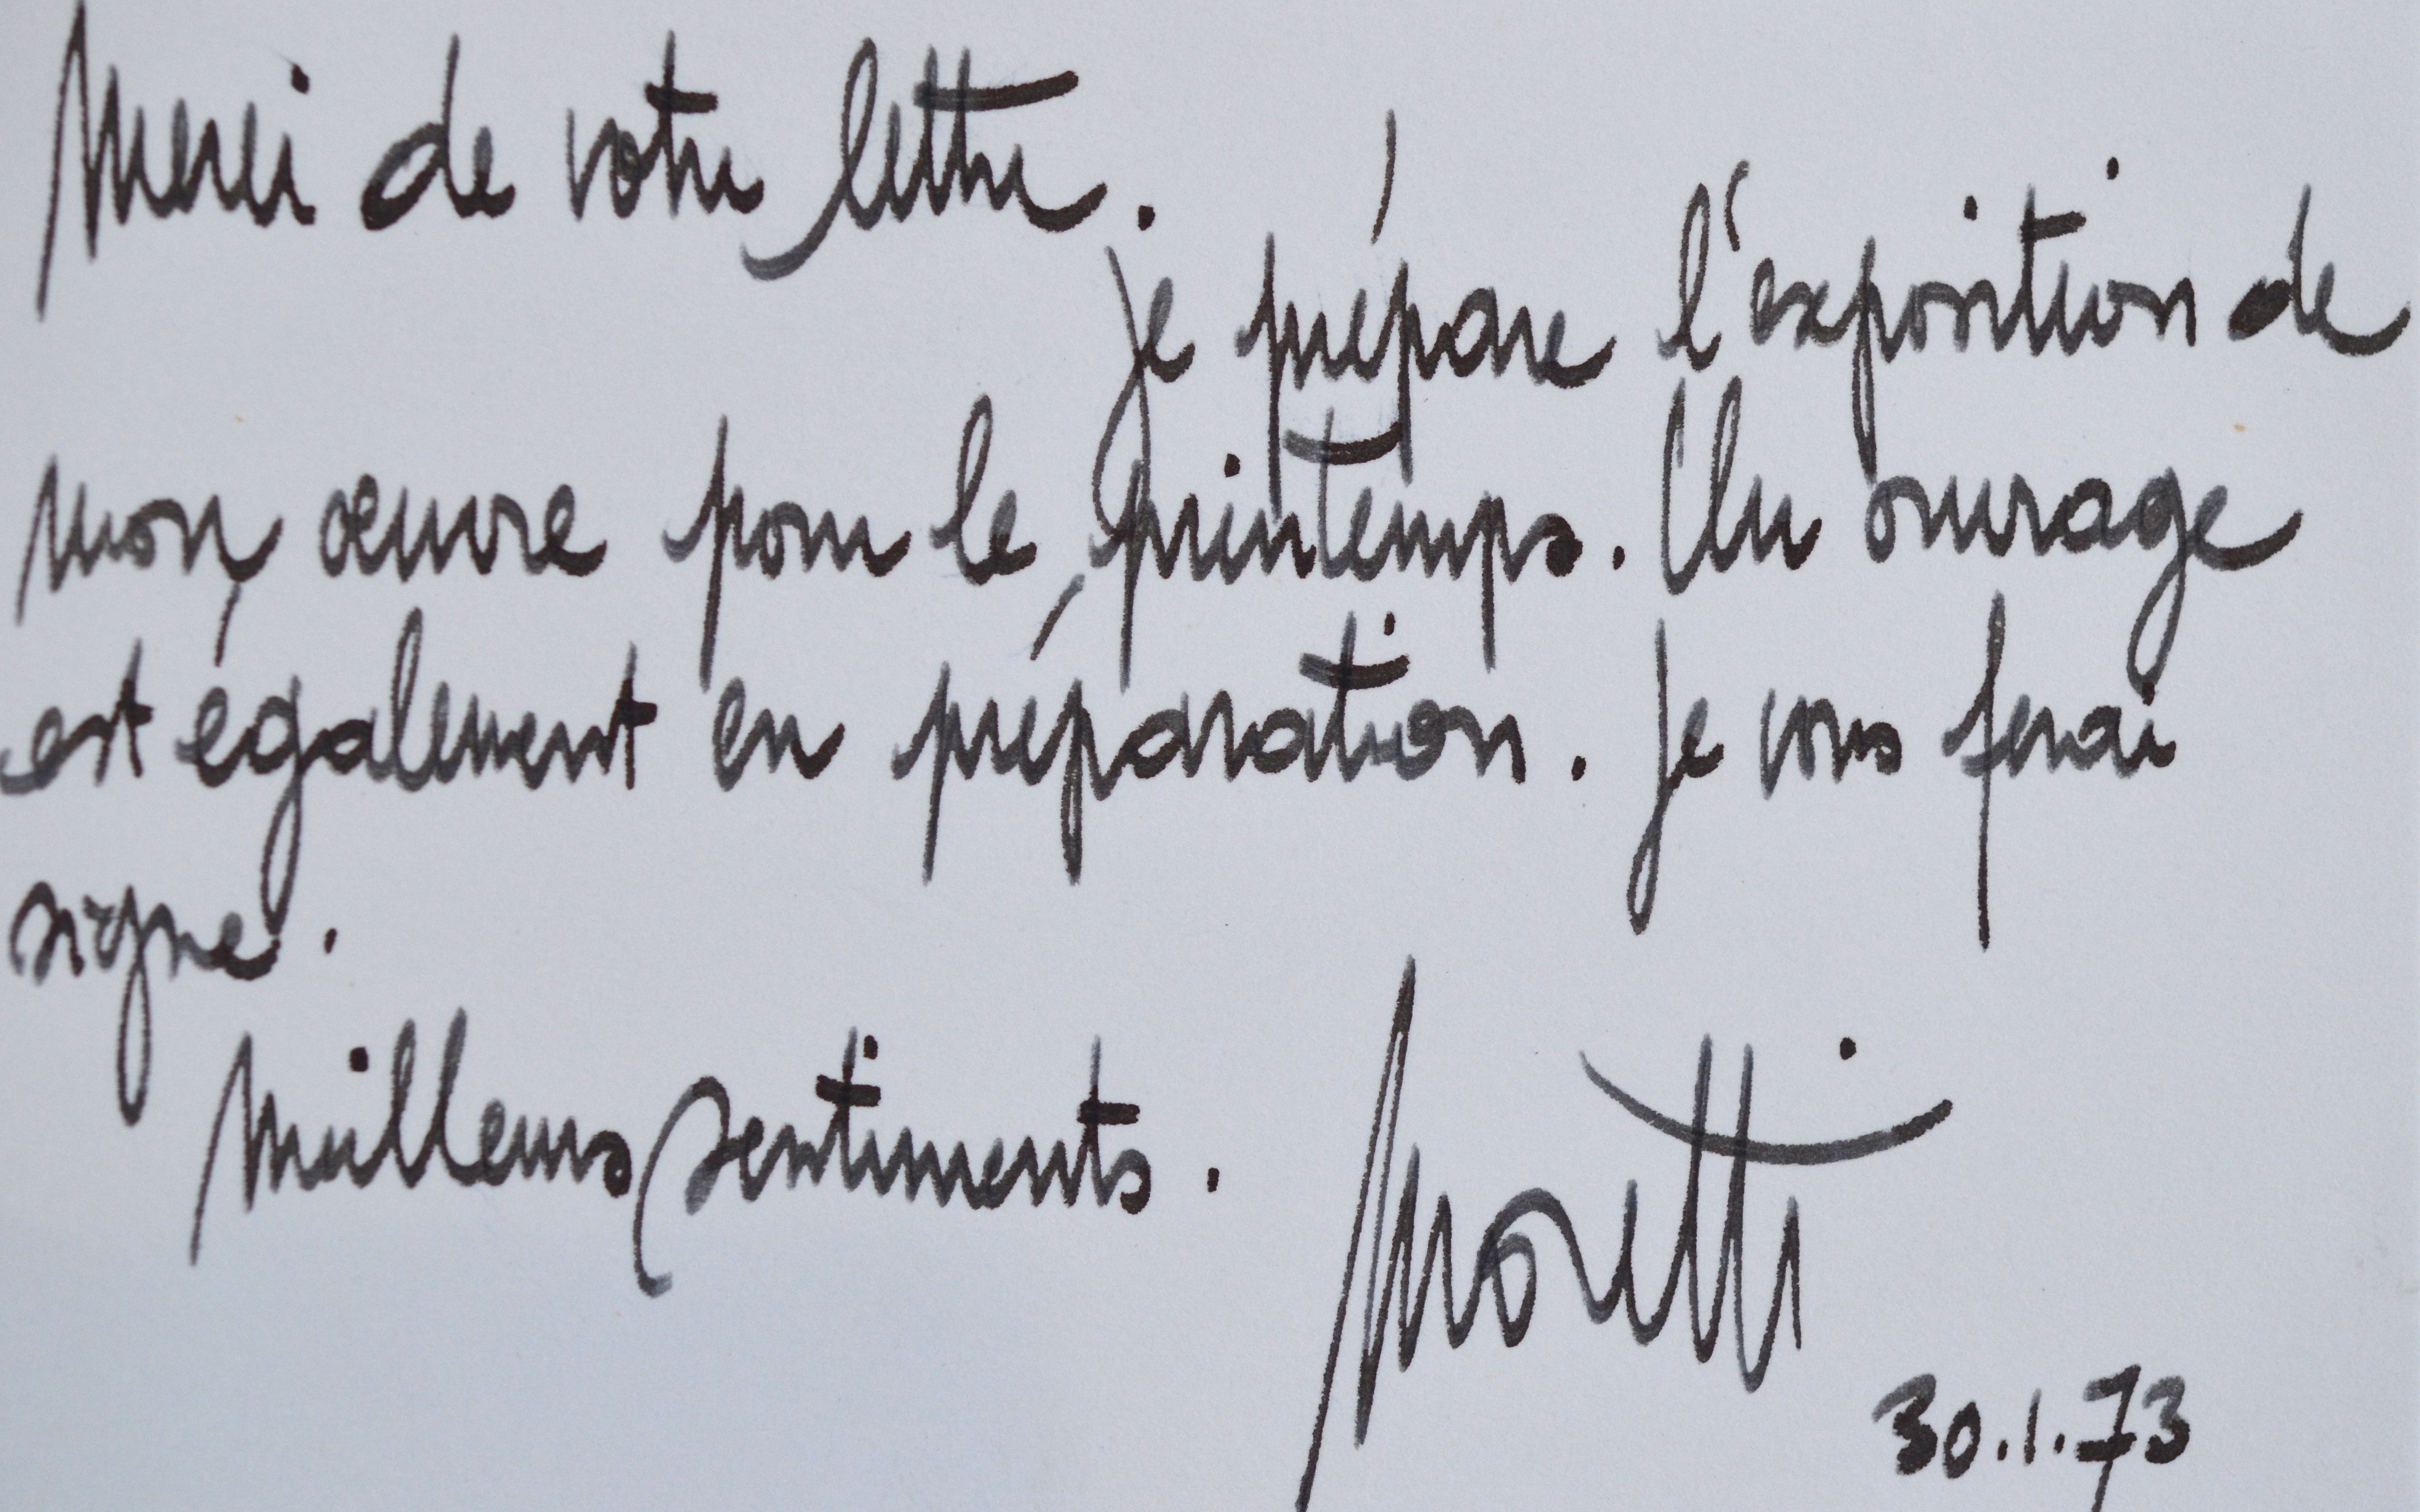 Merci de votre lettre.
Je prépare l'exposition de
mon œuvre pour le printemps. Un ouvrage
est également en préparation. Je vous ferai
signe.
Meilleurs sentiments.
Moretti
30.1.73